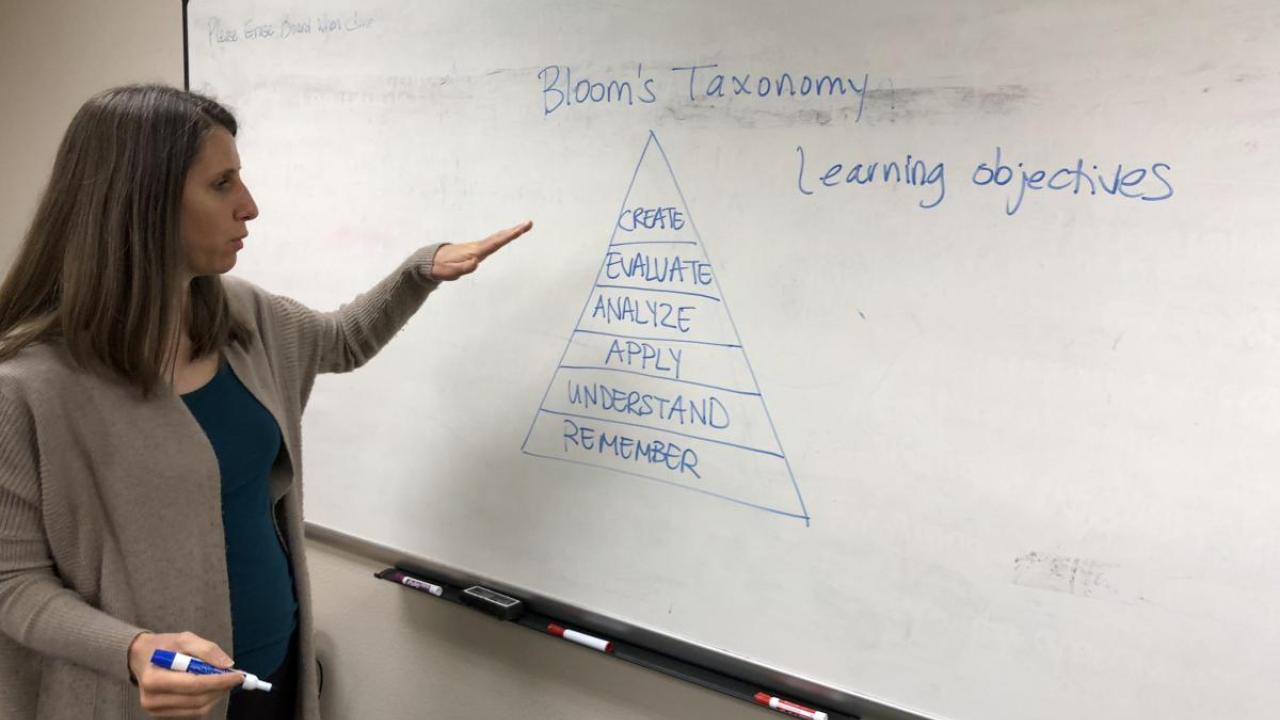 Please Erase Board When Done
Bloom's Taxonomy
Learning objectives
CREATE
EVALUATE
ANALYZE
APPLY
UNDERSTAND
REMEMBER